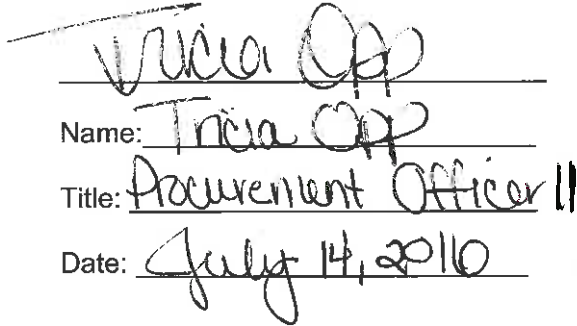 Tricia Opp
Name: Tricia Opp
Title: Procurement Officer II
Date: July 14, 2016